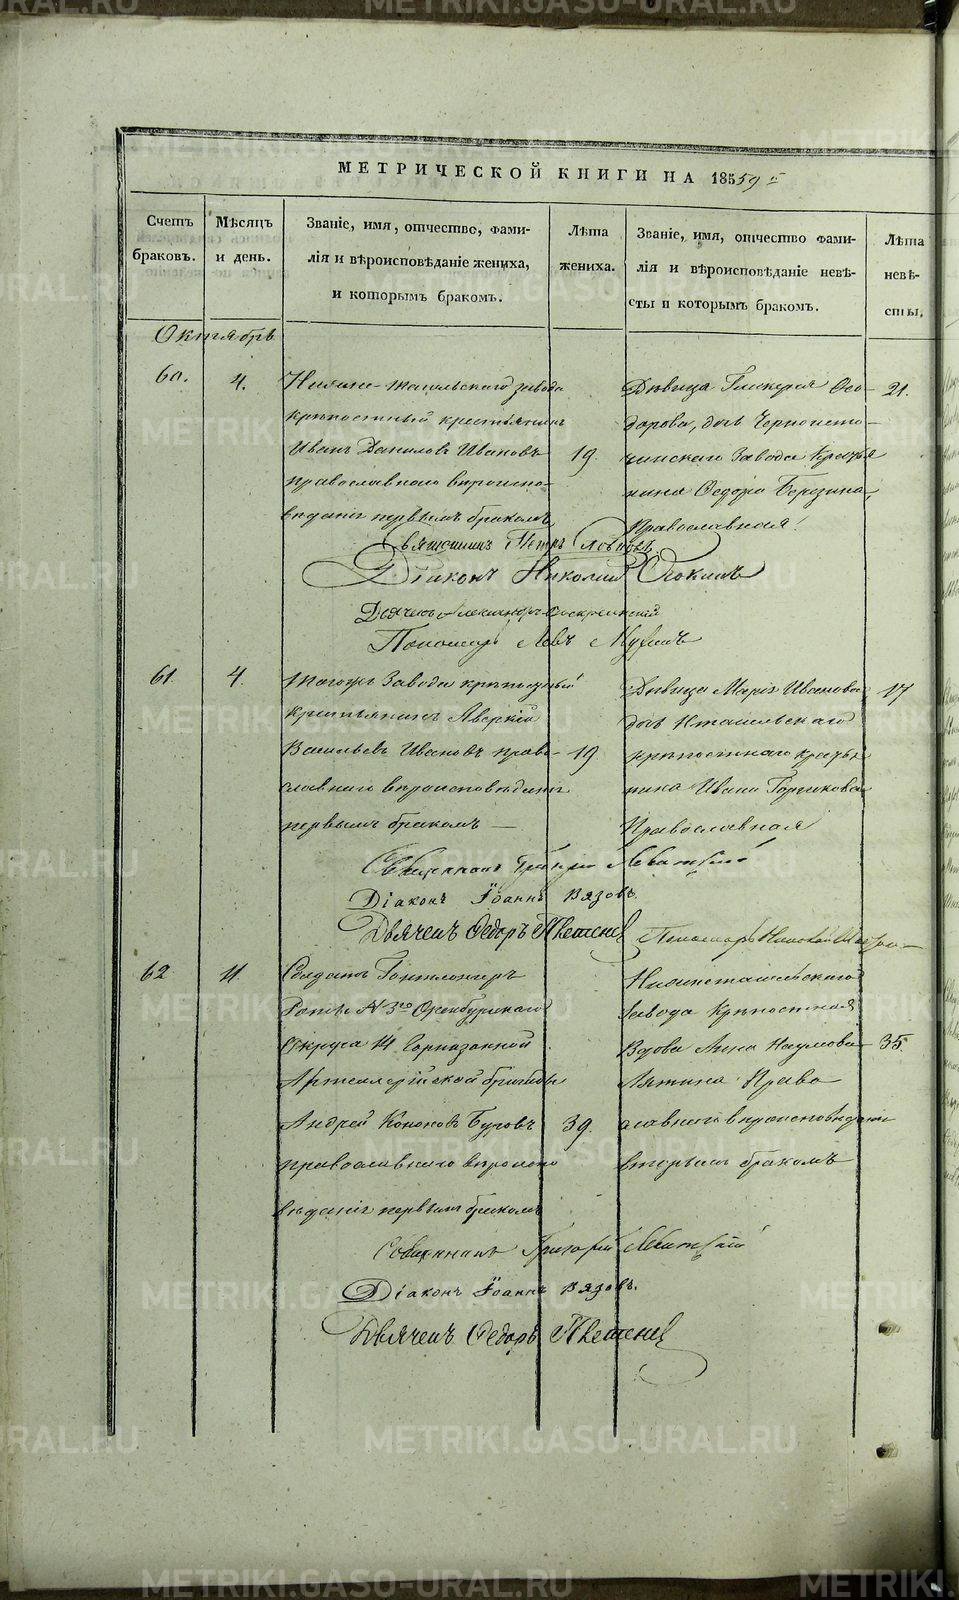 METRIKI.GASO-URAL.RU
МЕТРИЧЕСКОЙ КНИГИ НА 18559 г
Счетъ браковъ.
Мѣсяцъ и день.
Званіе, имя, отчество, фами-
лія и вѣроисповѣданіе жениха,
и которымъ бракомъ.
Лѣта жениха.
Званіе, имя, отчество фами-
лія и вѣроисповѣданіе невѣ-
сты и которымъ бракомъ.
Лѣта невѣ-
сты.
Октябрь
60.
4.
Нижне-тагильскаго завода
крѣпостный крестьянинъ
Иванъ Даниловъ Ивановъ
православнаго вѣроиспо-
веданія первымъ бракомъ
19.
Дѣвица Гликерія Ѳео-
дорова, дочь Черноисто-
чинскаго Завода Крестья
нина Ѳедора Березина,
Православная.
21.
Священникъ Петръ
Діаконъ Николай
Дьячекъ Александръ
Пономарь Левъ
61
4.
Тогожъ Завода крѣпостный
крестьянинъ Аверкій
Васильевъ Ивановъ право-
славнаго вѣроисповѣданія
первымъ бракомъ —
19
Дѣвица Марія Иванова
дочь Нтагильскаго
крѣпостнаго крестья
нина Ивана Горшкова
Православная
17
Священникъ Григорій Левитскій
Діаконъ Іоаннъ Вязовъ.
Дьячекъ Ѳедоръ
Пономарь Николай
62
11
Солдатъ
Роты N 3го Оренбургскаго
Округа 14 Гарнизонной
Артиллерійской бригады
Андрей Кононовъ Буровъ
православнаго вѣроиспо
вѣданія первымъ бракомъ
39.
Нижнетагильскаго
Завода Крѣпостная
Вдова Анна Наумова
Лятина Право
славнаго вѣроисповѣданія
вторымъ бракомъ
35.
Священникъ Григорій Левитскій
Діаконъ Іоаннъ Вязовъ.
Дьячекъ Ѳедоръ